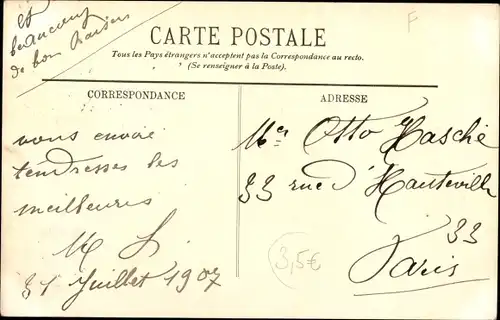 et
beaucoup
de bons baisers
CARTE POSTALE
Tous les Pays étrangers n'acceptent pas la Correspondance au recto.
(Se renseigner à la Poste).
F
CORRESPONDANCE
vous envoie
tendresses les
meilleures
31 Juillet 1907
ADRESSE
Otto Hasche
33 rue d'Hauteville
33
Paris
3,5€